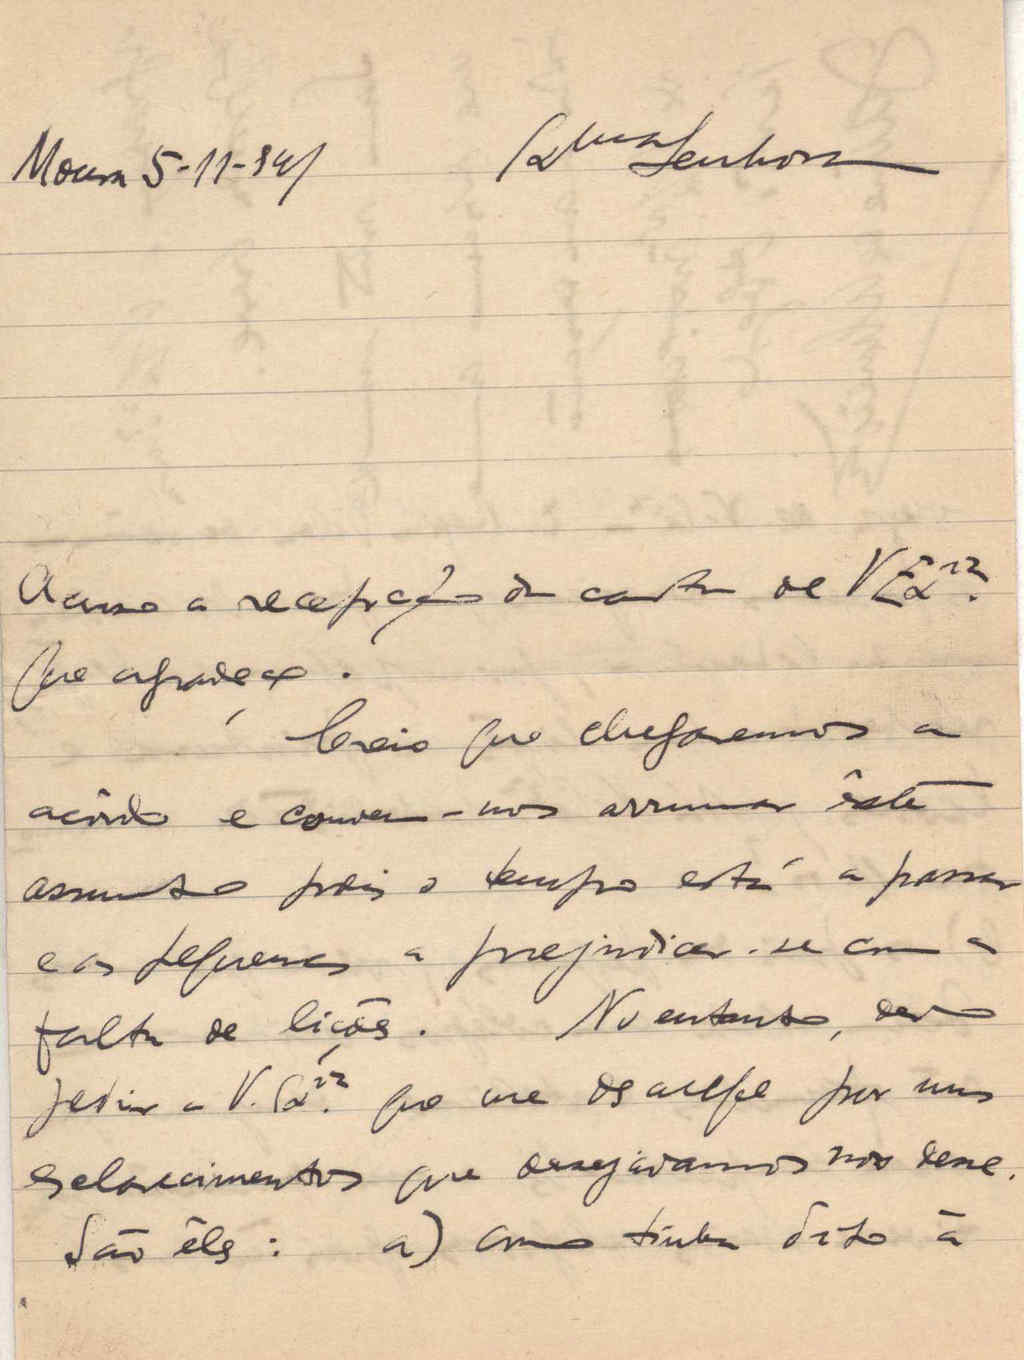 Moura 5-11-34/
Exma Senhora
Acuso a recepção da carta de V Exª.
que agradeço.
Creio que chegaremos a
acôrdo e convem-nos arrumar êste
assunto pois o tempo está a passar
e as pequenas a prejudicar-se com a
falta de lições. No entanto, devo
pedir a V. Exª. que me desculpe por uns
esclarecimentos que desejavamos nos desse.
São êles: a) como tinha dito à